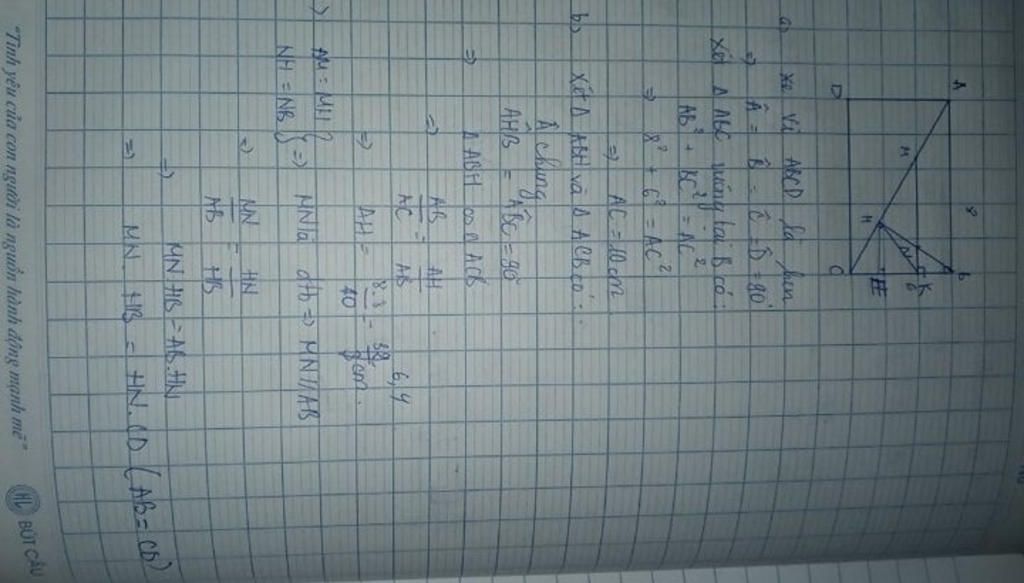 A
M
H
D
C
B
K
N
E
8
a) Vì ABCD là hcn
=> Â = B̂ = Ĉ = D̂ = 90°
Xét Δ ABC vuông tại B có:
AB² + BC² = AC²
=> 8² + 6² = AC²
=> AC = 10 cm
b) Xét Δ ABH và Δ ACB có:
 chung
AĤB = AB̂C = 90°
=> Δ ABH ∽ Δ ACB
=> AB/AC = AH/AB
=> AH = 8.8/10 = 6,4 cm.
) AM = MH
NH = NB } => MN là đtb => MN // AB
=> MN/AB = HN/HB
=> MN.HB = AB.HN
=> MN.HB = HN.CD (AB = CD)
"Tình yêu của con người là nguồn hành động mạnh mẽ"
HL BÚT CÂU